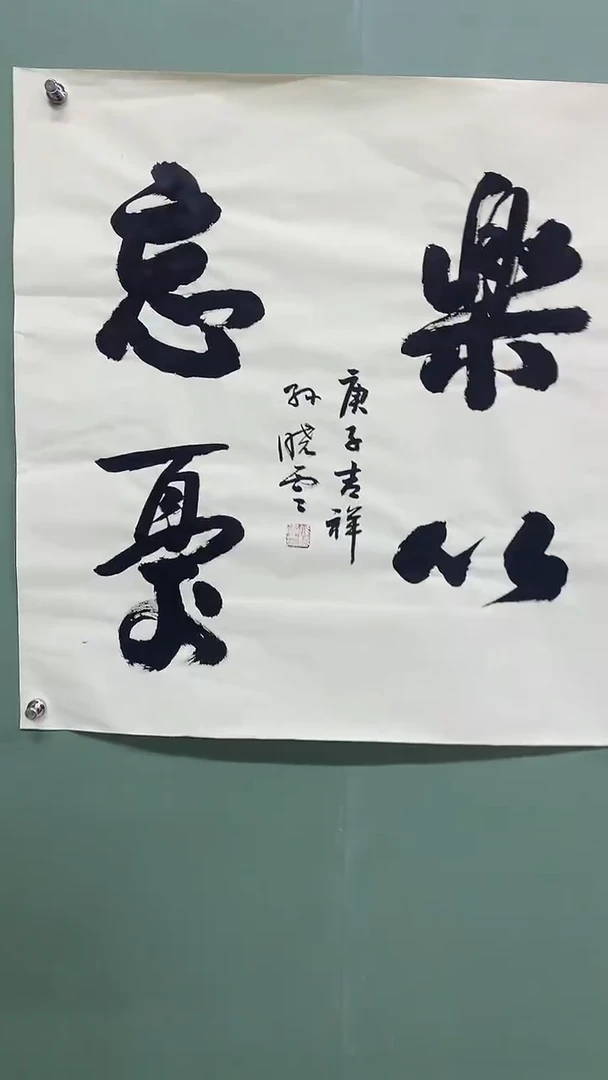 樂以
忘憂
庚子吉祥
孙晓雲